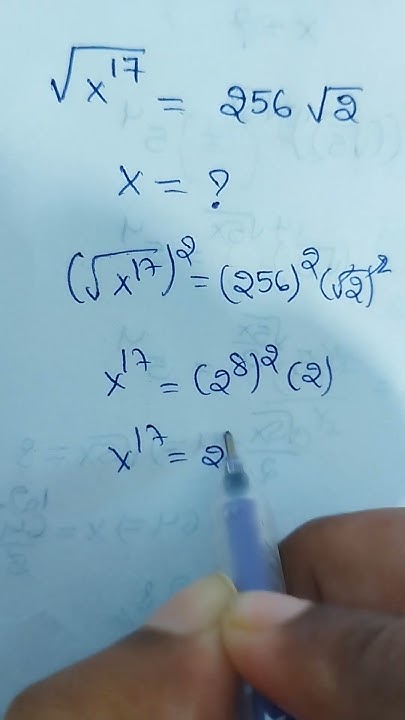 √x¹⁷ = 256 √2
x = ?
(√x¹⁷)² = (256)² (√2)²
x¹⁷ = (2⁸)² (2)
x¹⁷ = 2